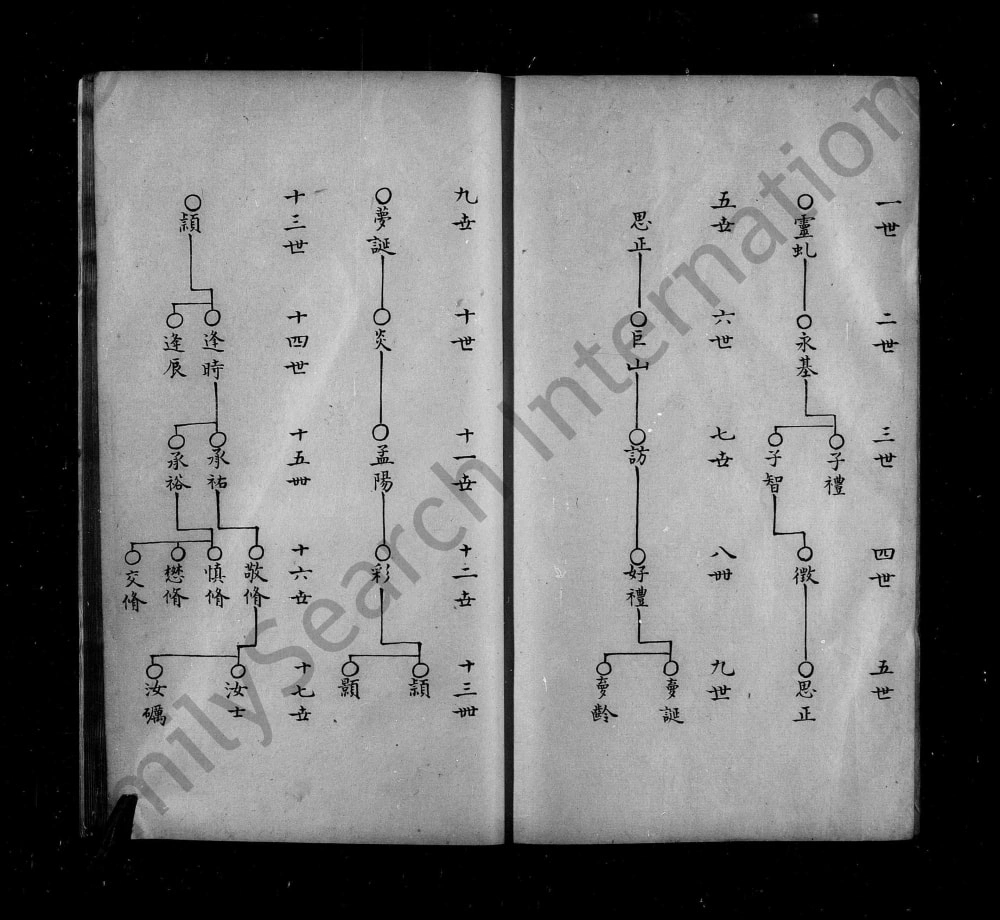 一世
二世
三世
四世
五世
靈虬
永基
子禮
子智
徵
思正
五世
六世
七世
八世
九世
思正
巨山
訪
好禮
夢誕
夢齡
九世
十世
十一世
十二世
十三世
夢誕
炎
孟陽
彩
頴
顥
十三世
十四世
十五世
十六世
十七世
頴
逢時
逢辰
承祐
承裕
敬脩
慎脩
懋脩
交脩
汝士
汝礪
FamilySearch International